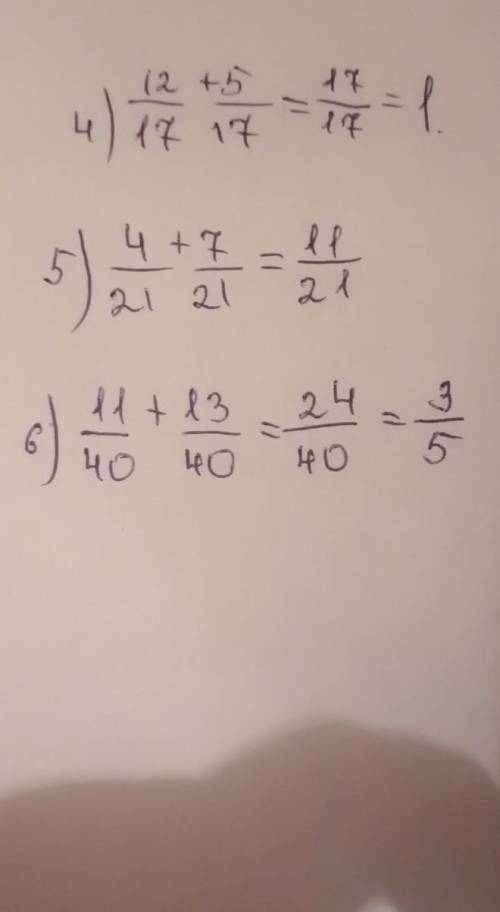 4) 12/17 + 5/17 = 17/17 = 1.
5) 4/21 + 7/21 = 11/21
6) 11/40 + 13/40 = 24/40 = 3/5